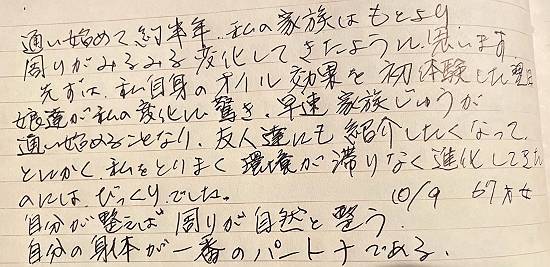 通い始めて約半年、私の家族はもとより
周りがみるみる変化してきたように思います
先ずは、私自身のオイル効果を初体験した翌日
娘達が私の変化に驚き、早速家族じゅうが
通い始めることなり、友人達にも紹介したくなって、
とにかく、私をとりまく環境が滞りなく進化してきた
のには、びっくりでした。
10/9 67才女
自分が整えば周りが自然と整う、
自分の身体が一番のパートナである、